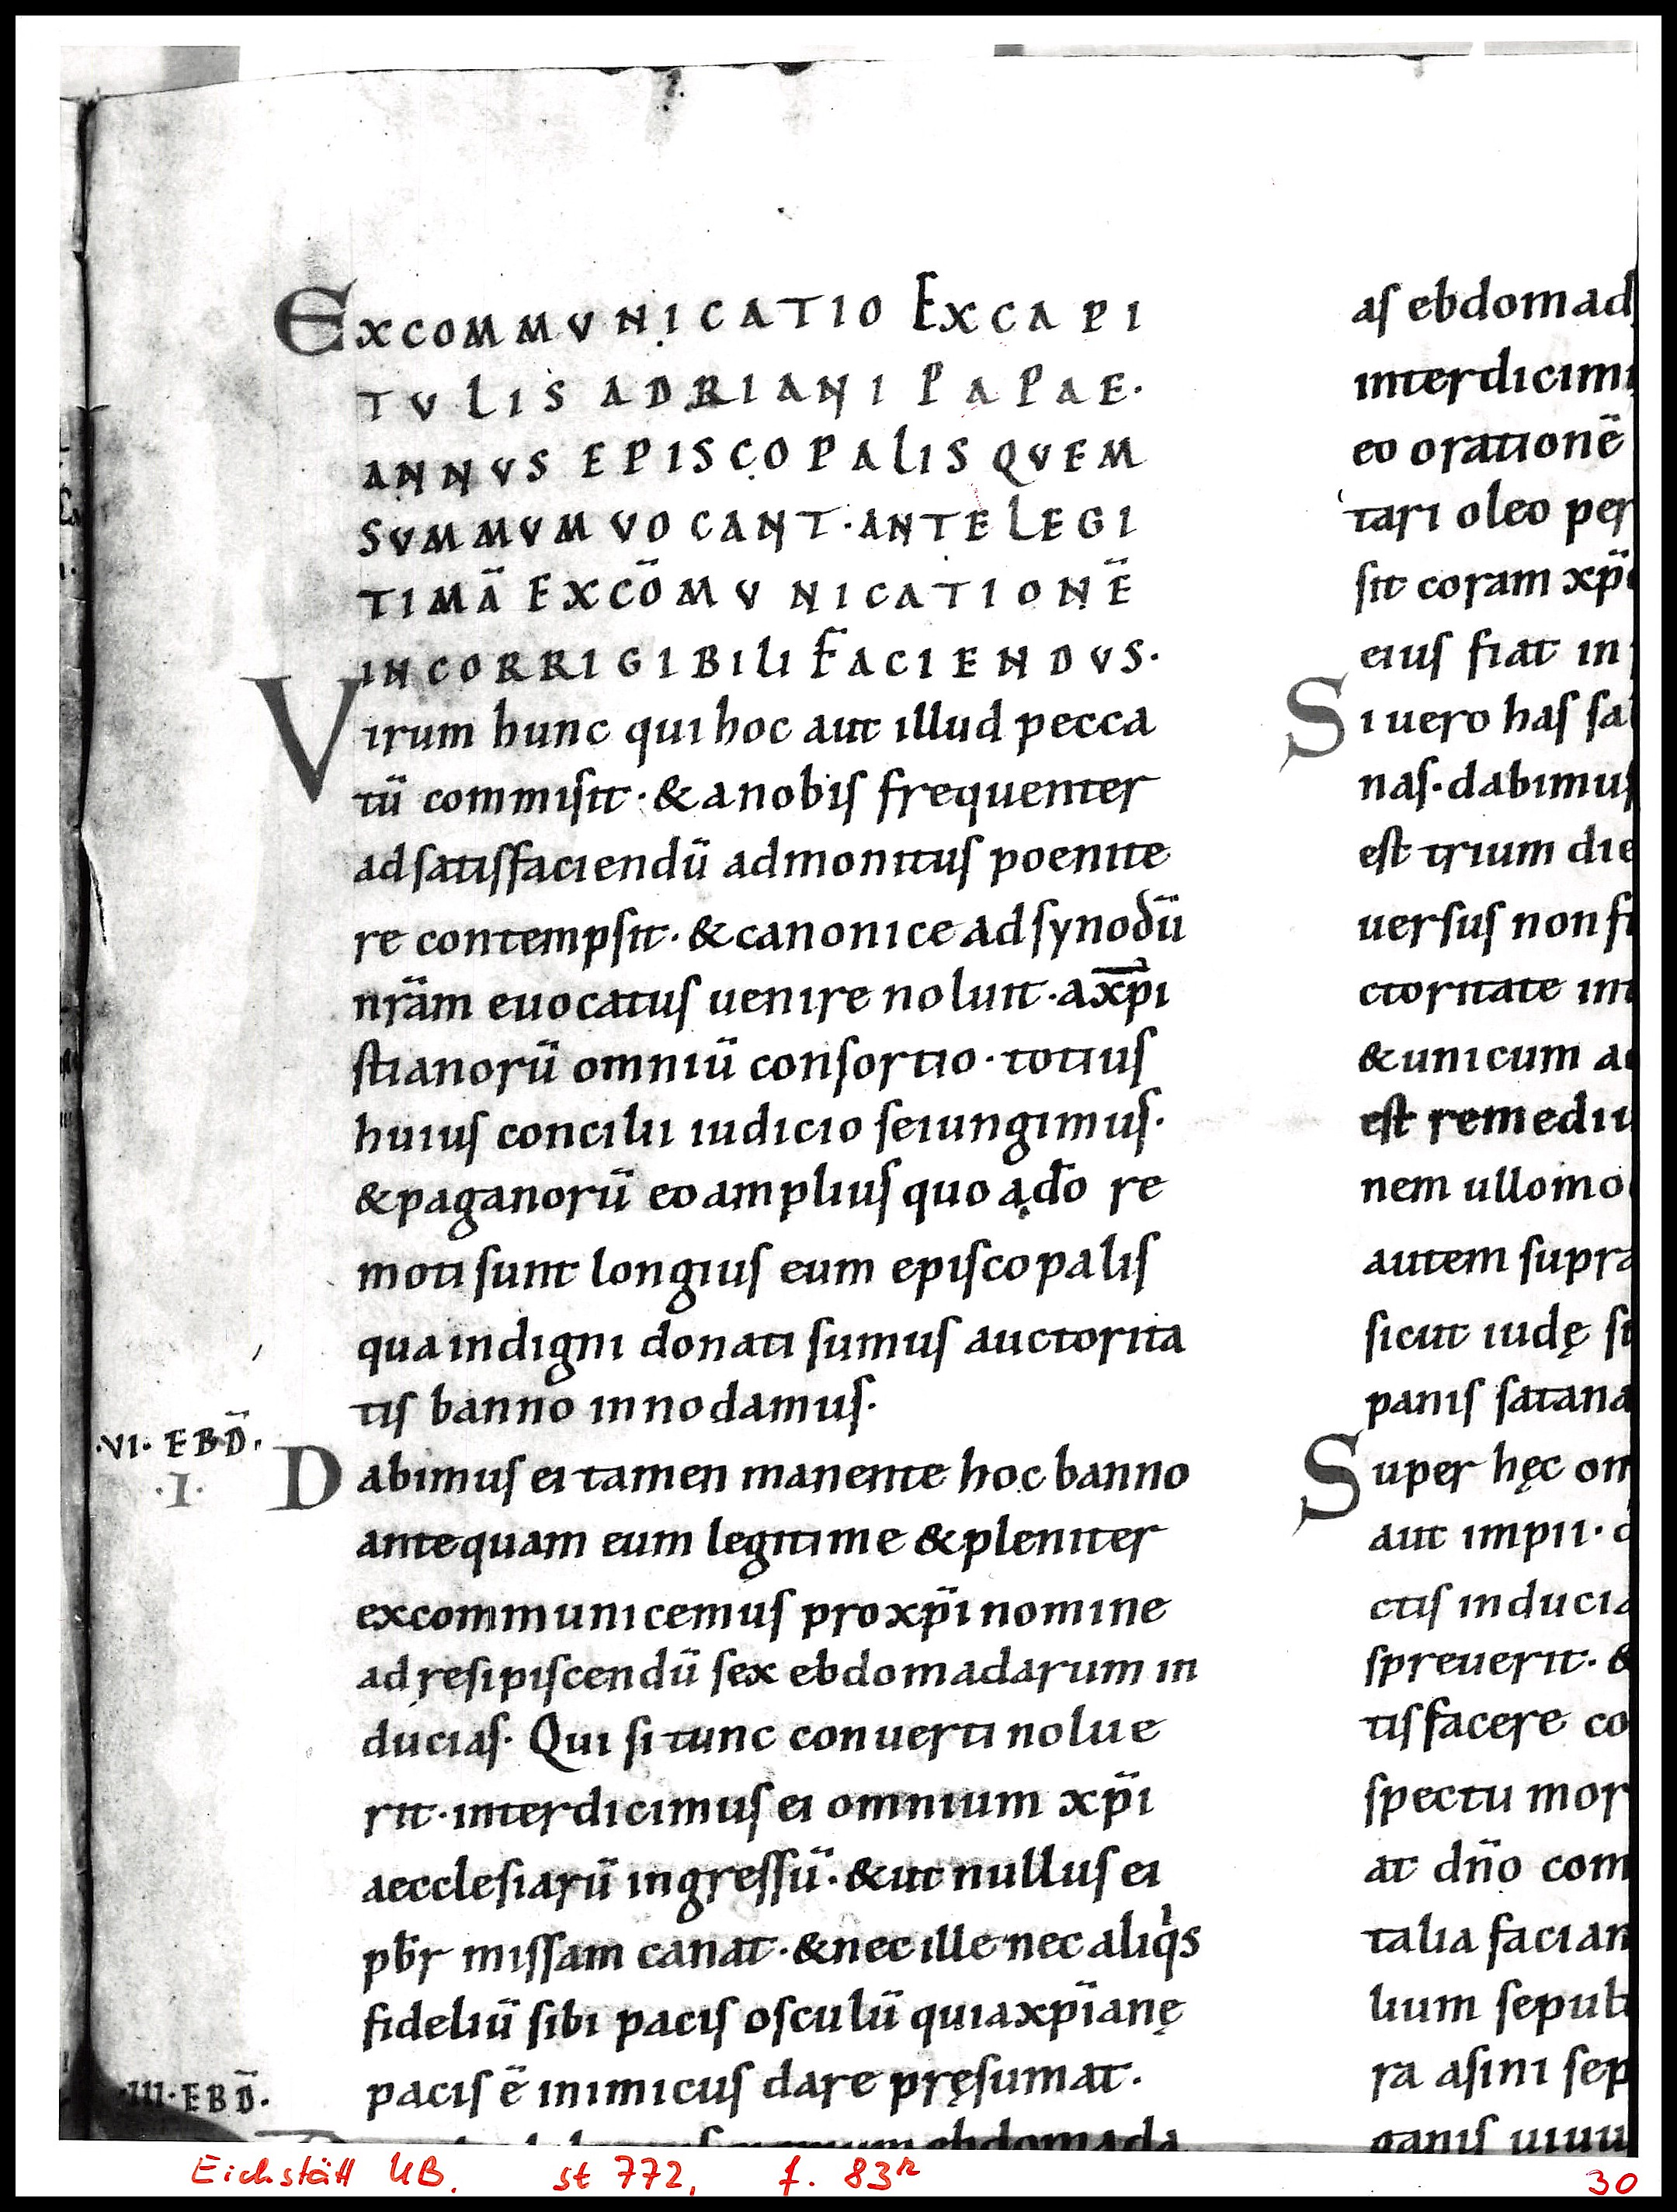 EXCOMMVNICATIO EXCAPI
TVLIS ADRIANI PAPAE.
ANNVS EPISCOPALIS QVEM
SVMMVM VOCANT· ANTE LEGI
TIMĀ EXCŌMVNICATIONĒ
INCORRIGIBILI FACIENDVS.
Virum hunc qui hoc aut illud pecca
tū commiſit· & a nobiſ frequenter
ad ſatiſfaciendū admonituſ poenite
re contempſit· & canonice ad ſynodū
nr̄am euocatuſ uenire noluit· a xp̄i
ſtianorū omniū conſortio· totiuſ
huiuſ concilii iudicio ſeiungimuſ.
& paganorū eo ampliuſ quo a d̄o re
moti ſunt longiuſ eum epiſcopaliſ
qua indigni donati ſumuſ auctorita
tiſ banno innodamuſ.
·VI· EBD̄.
·I·
Dabimuſ ei tamen manente hoc banno
antequam eum legitime & pleniter
excommunicemuſ pro xp̄i nomine
ad reſipiſcendū ſex ebdomadarum in
duciaſ. Qui ſi tunc conuerti nolue
rit· interdicimuſ ei omnium xp̄i
aeccleſiarū ingreſſū. & ut nulluſ ei
pb̄r miſſam canat· & nec ille nec aliq̇s
fideliū ſibi paciſ oſculū quia xp̄ianę
paciſ ē inimicuſ dare pręſumat.
III· EBD̄.
ebdomada
aſ ebdomad
interdicim
eo orationē
tari oleo per
ſit coram xp̄
eiuſ fiat in
Si uero haſ ſa
naſ· dabimuſ
eſt trium die
uerſuſ non ſi
ctoritate in
& unicum a
eſt remediu
nem ullomo
autem ſupra
ſicut iudę ſi
paniſ ſatana
Super hęc om
aut impii·
ctiſ inducia
ſpreuerit· &
tiſfacere co
ſpectu mor
at dn̄o com
talia facian
lium ſepul
ra aſini ſep
ganiſ uiuu
Eichstätt UB. st 772, f. 83r
30